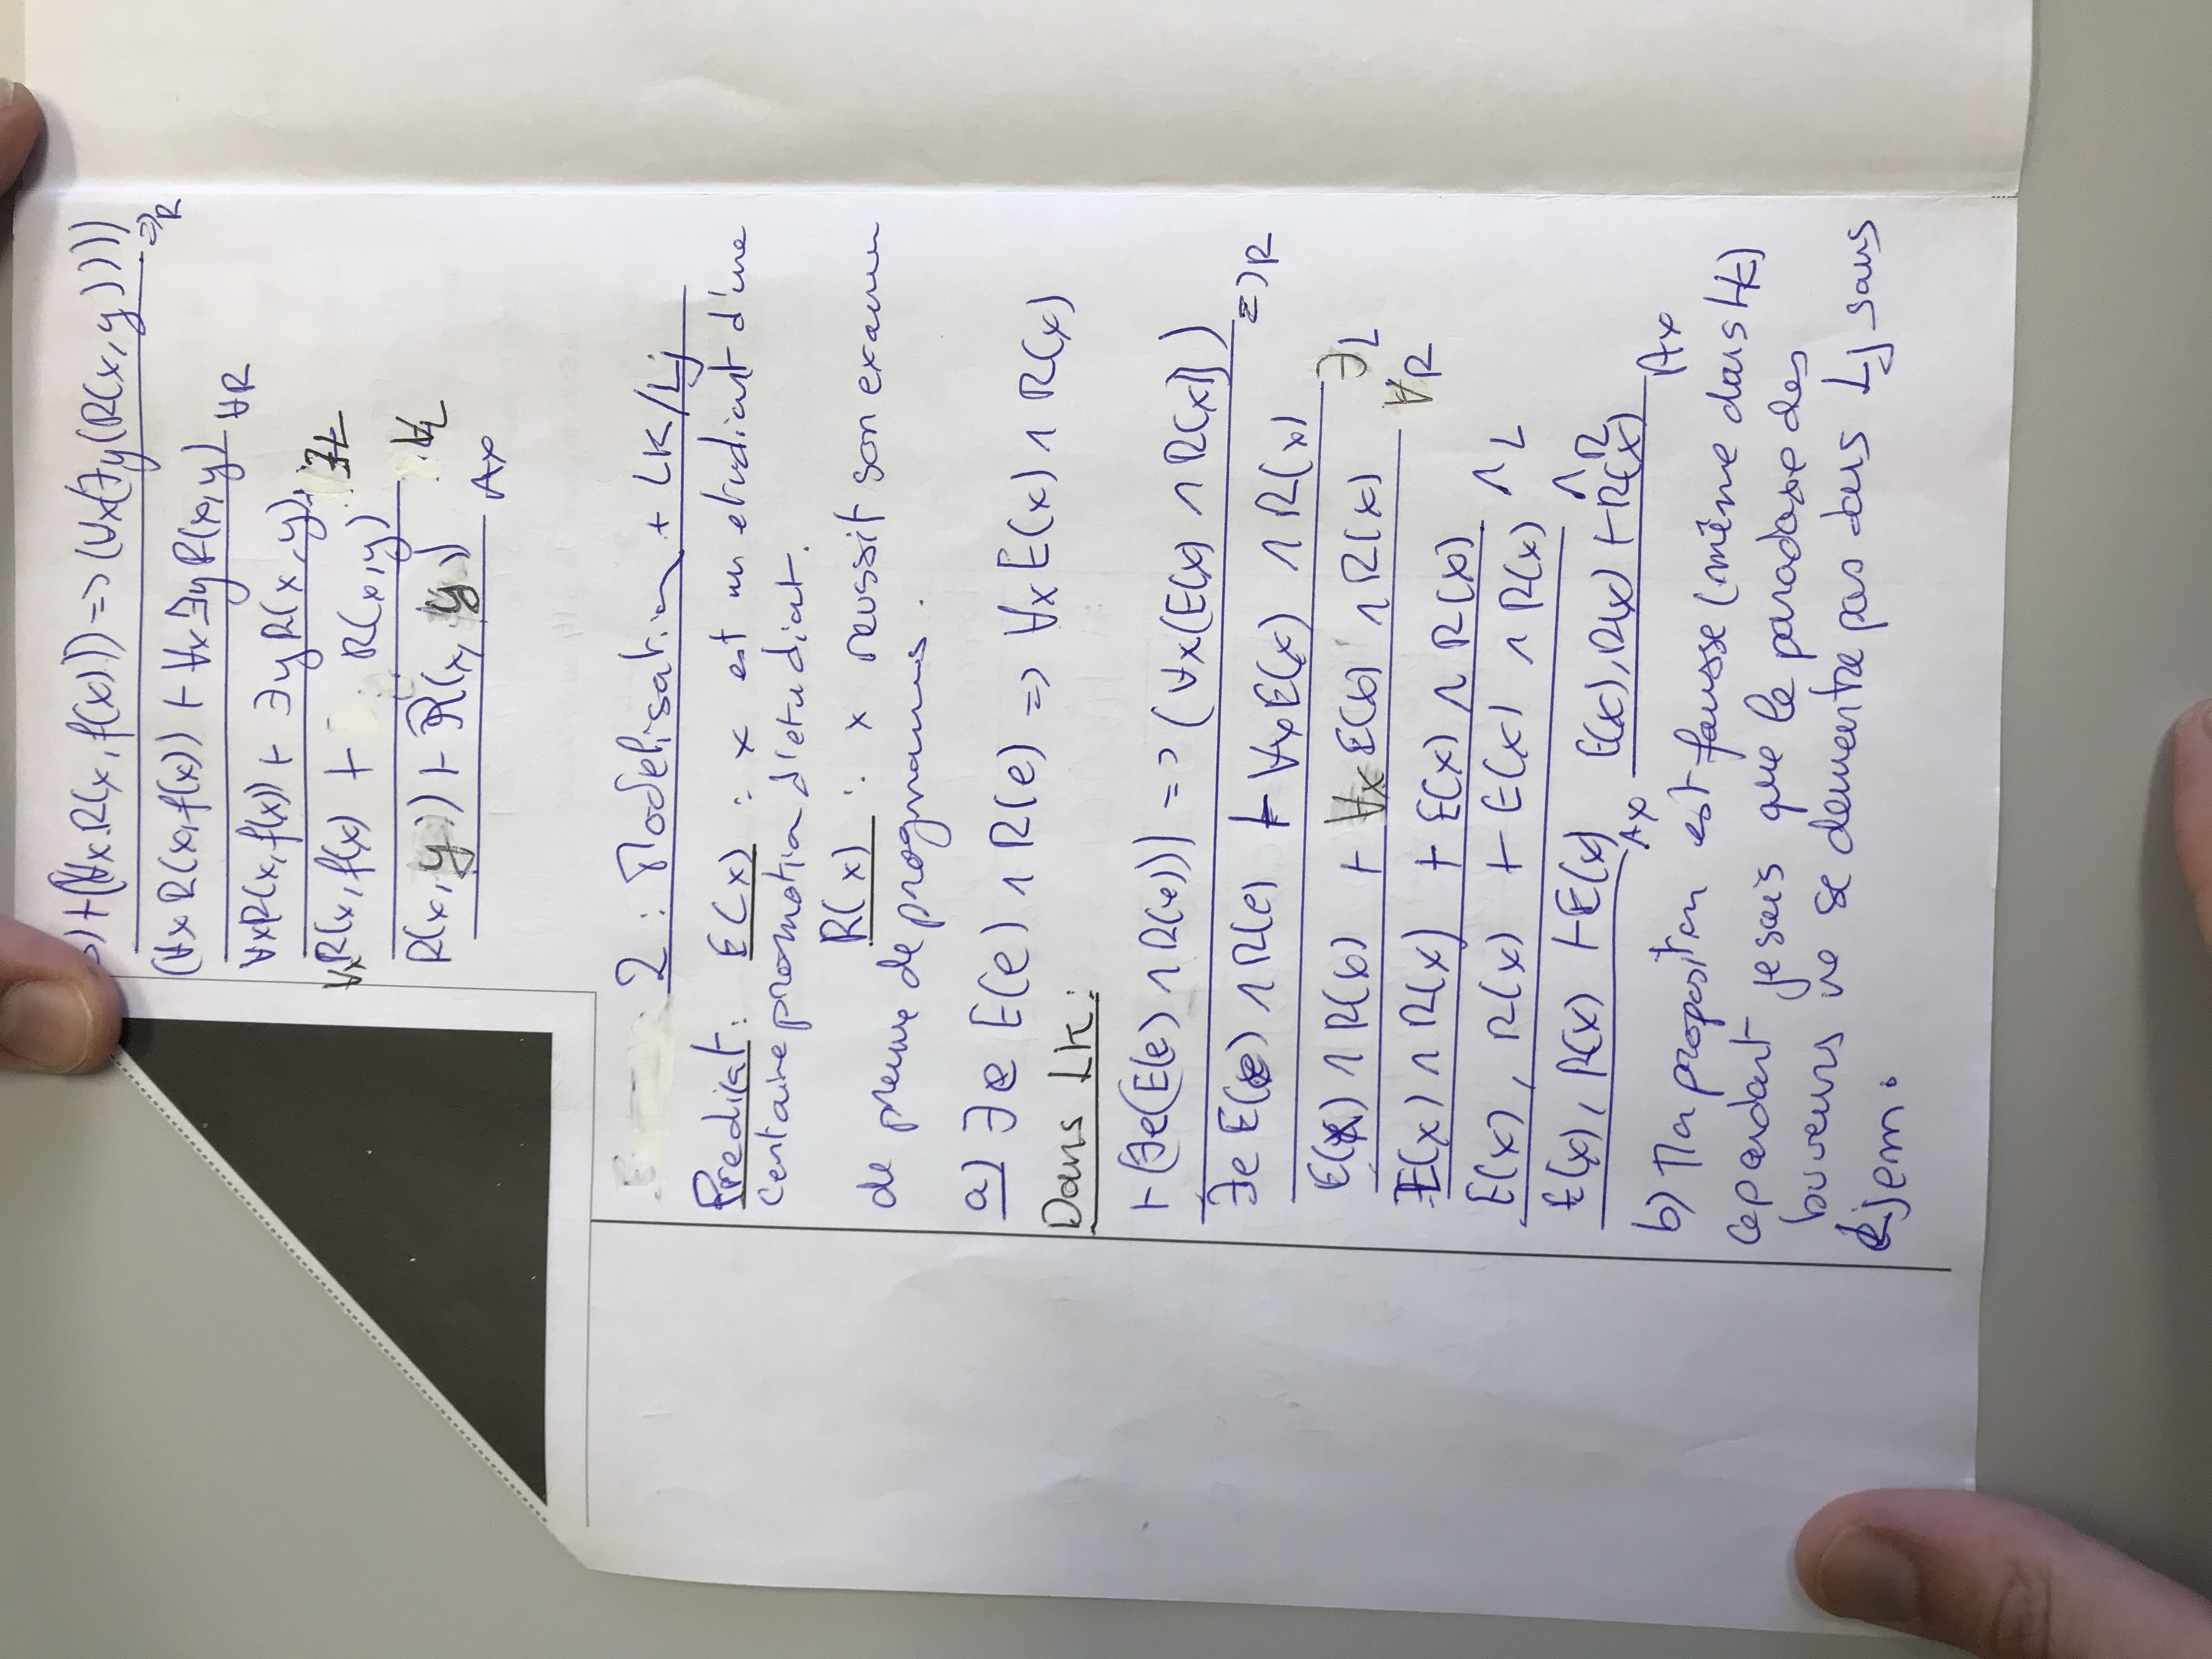 ) ⊢ (∀x.R(x, f(x))) => (∀x(∃y(R(x,y))))
=>R
(∀x R(x, f(x)) ⊢ ∀x ∃y R(x,y)
∀R
∀xR(x, f(x)) ⊢ ∃y R(x,y)
∃L
∀x R(x, f(x) ⊢ R(x,y)
∀L
R(x, y) ⊢ R(x, y)
Ax
2 : Modelisation + LK/Lj
Predicat : E(x) : x est un etudiant d'une
certaine promotion d'etudiant.
R(x) : x reussit son examen
de preuve de programmes.
a) ∃e E(e) ∧ R(e) => ∀x E(x) ∧ R(x)
Dans LK :
⊢ (∃e(E(e) ∧ R(e))) => (∀x(E(x) ∧ R(x)))
=>R
∃e E(e) ∧ R(e) ⊢ ∀x E(x) ∧ R(x)
∃L
E(x) ∧ R(x) ⊢ ∀x E(x) ∧ R(x)
∀R
E(x) ∧ R(x) ⊢ E(x) ∧ R(x)
∧L
E(x), R(x) ⊢ E(x) ∧ R(x)
∧R
E(x), R(x) ⊢ E(x) E(x), R(x) ⊢ R(x)
Ax Ax
b) Ma proposition est fausse (même dans LK)
cependant je sais que le paradoxe des
buveurs ne se demontre pas dans Lj sans
Ljem.